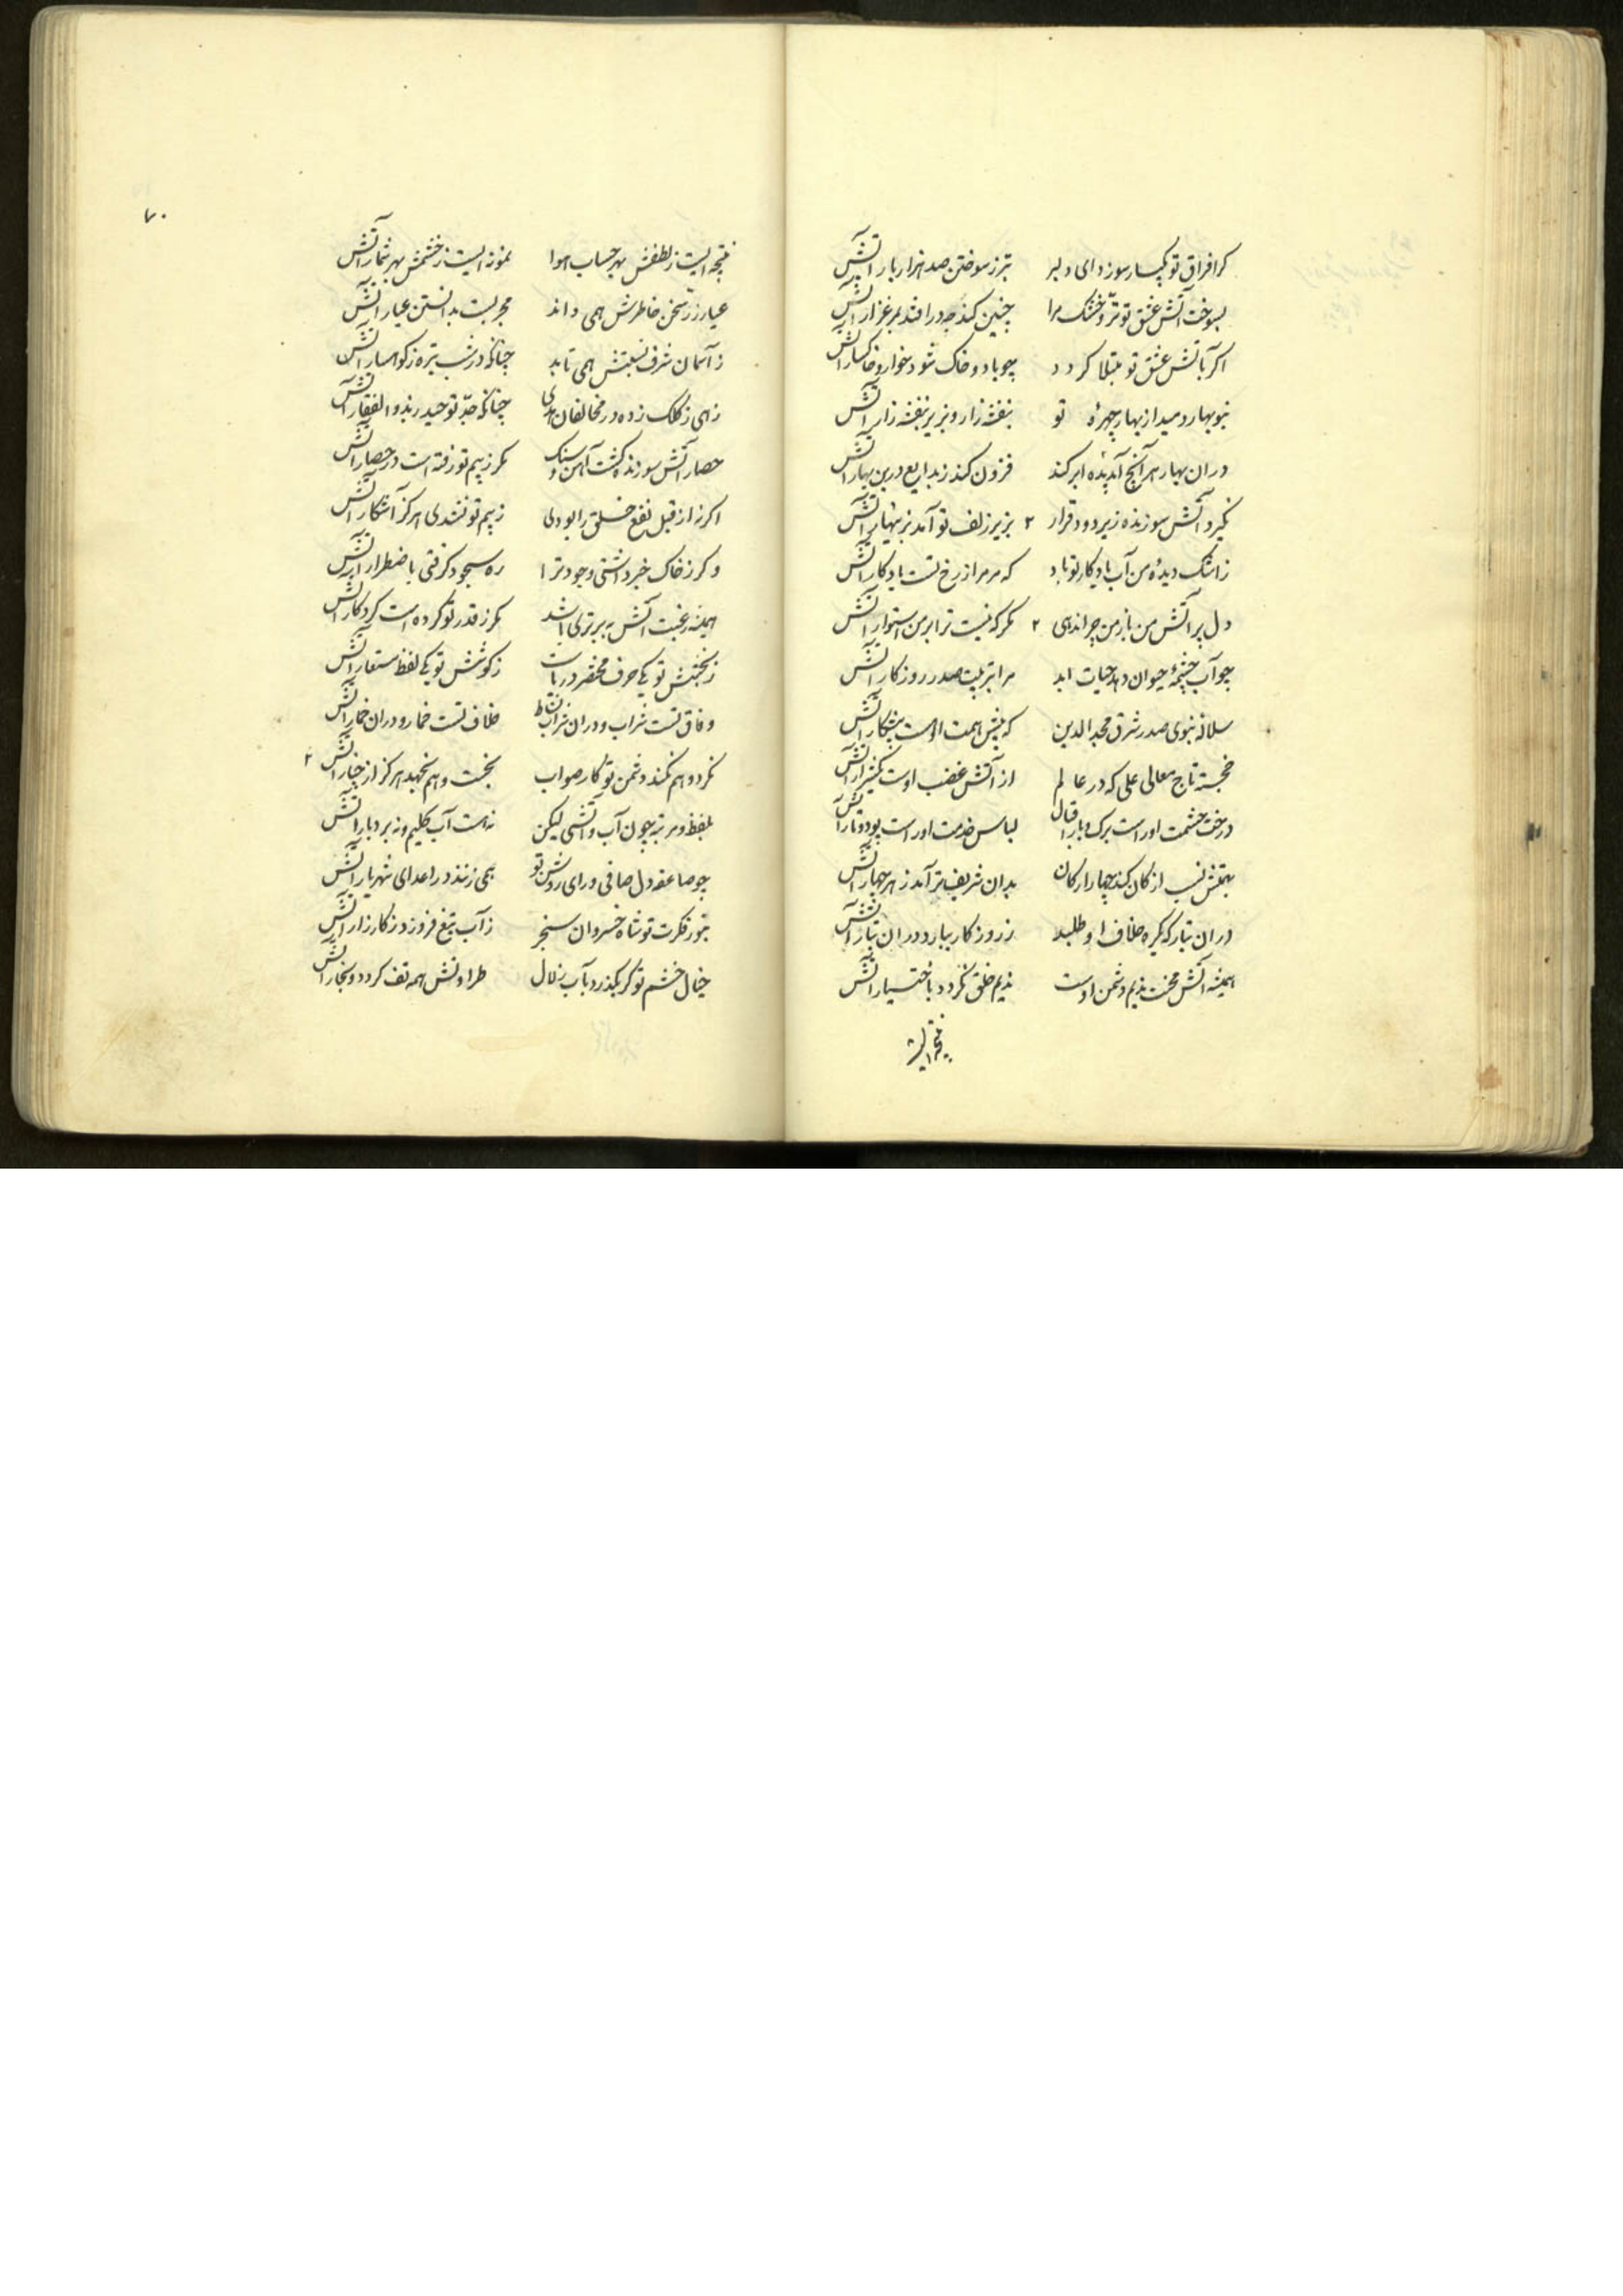 کرا فراق تو یکبار سوزد ای دلبر بتر ز سوختن صد هزار بار آتش
بسوخت آتش عشق تو تر و خشک مرا چنین کند چه در افتد بمرغزار آتش
اگر بآتش عشق تو مبتلا کردد چو باد و خاک شود خوار و خاکسار آتش
بنوبهار دمید از بهار چهرهٔ تو بنفشه زار و بزیر بنفشه زار آتش
در ان بهار هر آنج آب دیدهٔ ابر کند فزون کند ز بدایع درین بهار آتش
نکیرد آتش سوزنده زیر دود قرار ۲ بزیر زلف تو آمد بزینهار آتش
ز اشک دیدهٔ من آب یادکار تو باد که مر مرا ز رخ تست یادکار آتش
دل پر آتش من باز من چرا ندهی ۲ مکر که نیست ترا بر من استوار آتش
چو آب چشمهٔ حیوان دهد حیات ابد مرا بتربیت صدر روزکار آتش
سلالهٔ نبوی صدر شرق مجد الدین که پیش همت او هست پیشکار آتش
خجسته تاج معالی علی که در عالم از آتش غضب اوست یک شرار آتش
درخت حشمت او راست برک و بار اقبال لباس خدمت او راست پود و تار آتش
بهمتش نسب ار کان کند چهار ارکان بدان شریف تر آمد ز هر چهار آتش
در ان تبار که کیره خلاف او طلبد ز روزکار ببارد در ان تبار آتش
همیشه آتش محنت ندیم دشمن اوست ندیم خلق نکردد باختیار آتش
نتیجه ایست
نتیجه ایست ز لطفش بهر حساب هوا نمونه ایست ز خشمش بهر شمار آتش
عیار زر سخن خاطرش همی داند مجربست بدانستن عیار آتش
ز آسمان شرف نسبتش همی تابد چنانکه در شب تیره ز کوهسار آتش
زهی ز کلک زده در مخالفان هدی چنانکه جد تو حیدر بذو الفقار آتش
حصار آتش سوزنده کشت آهن و سنک مکر ز بیم تو رفته است در حصار آتش
اکر نه از قبل نفع خلق را بودی ز بیم تو نشدی هرکز آشکار آتش
و کر ز خاک خبر داشتی وجود ترا ره سجود کرفتی باضطرار آتش
همیشه رغبت آتش به برتری باشد مکر ز قدر تو کرده است کردکار آتش
ز بخشش تو یکی حرف مختصر دریاست ز کوشش تو یکی لفظ مستعار آتش
وفاق تست شراب و در ان شراب نشاط خلاف تست خمار و در ان خمار آتش
نکرد و هم نکند دشمن تو کار صواب نجست و هم نجهد هرکز از خیار آتش ۲
بلفظ و مرتبه چون آب و آتشی لیکن نه هست آب حکیم و نه بردبار آتش
چو صاعقه دل صافی و رای روشن تو همی زنند در اعدای شهریار آتش
بنور فکرت تو شاه خسروان سنجر ز آب تیغ فروزد ز کارزار آتش
خیال خشم تو کر بکذرد بآب زلال طراوتش همه تف کردد و بخار آتش
۷۰